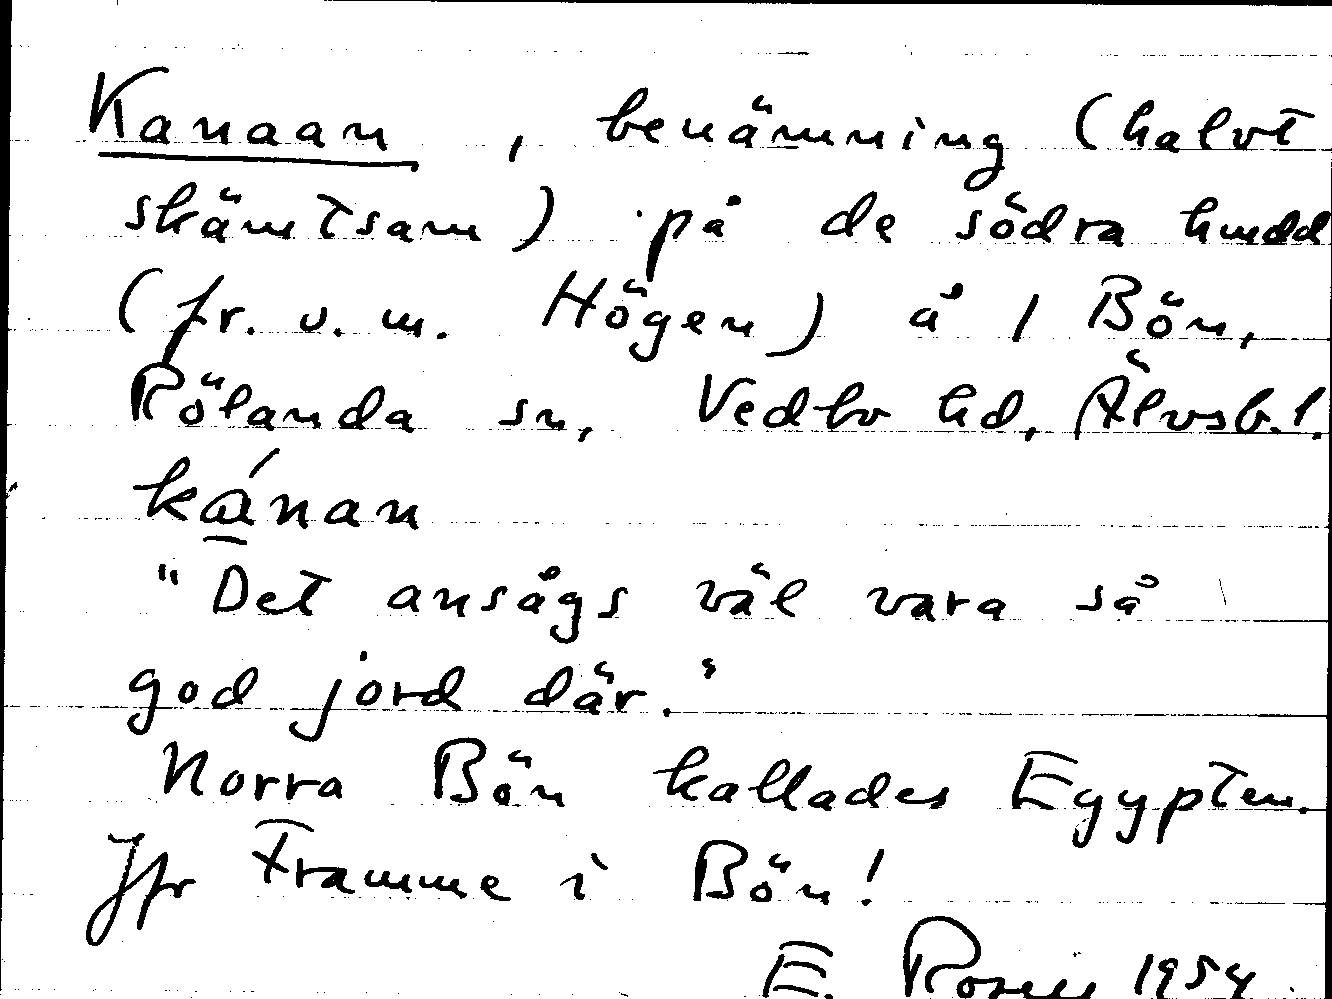 Kanaan, benämning (halvt
skämtsam) på de södra hmdd
(fr. o. m. Högen) å 1 Bön,
Rölanda sn, Vedbo hd, Älvsb. l.
kánan
"Det ansågs väl vara så
god jord där."
Norra Bön kallades Egypten.
Jfr Framme i Bön!
E. 1954